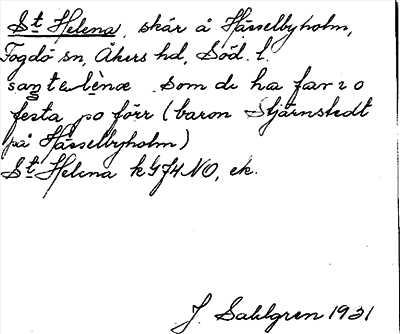 St Helena, skär å Hässelbyholm,
Fogdö sn, Åkers hd, Söd. l.
som de ha farit o
festa po förr (baron Stjärnstedt
på Hässelbyholm)
St Helena k 474 NO, ek.
J. Sahlgren 1931